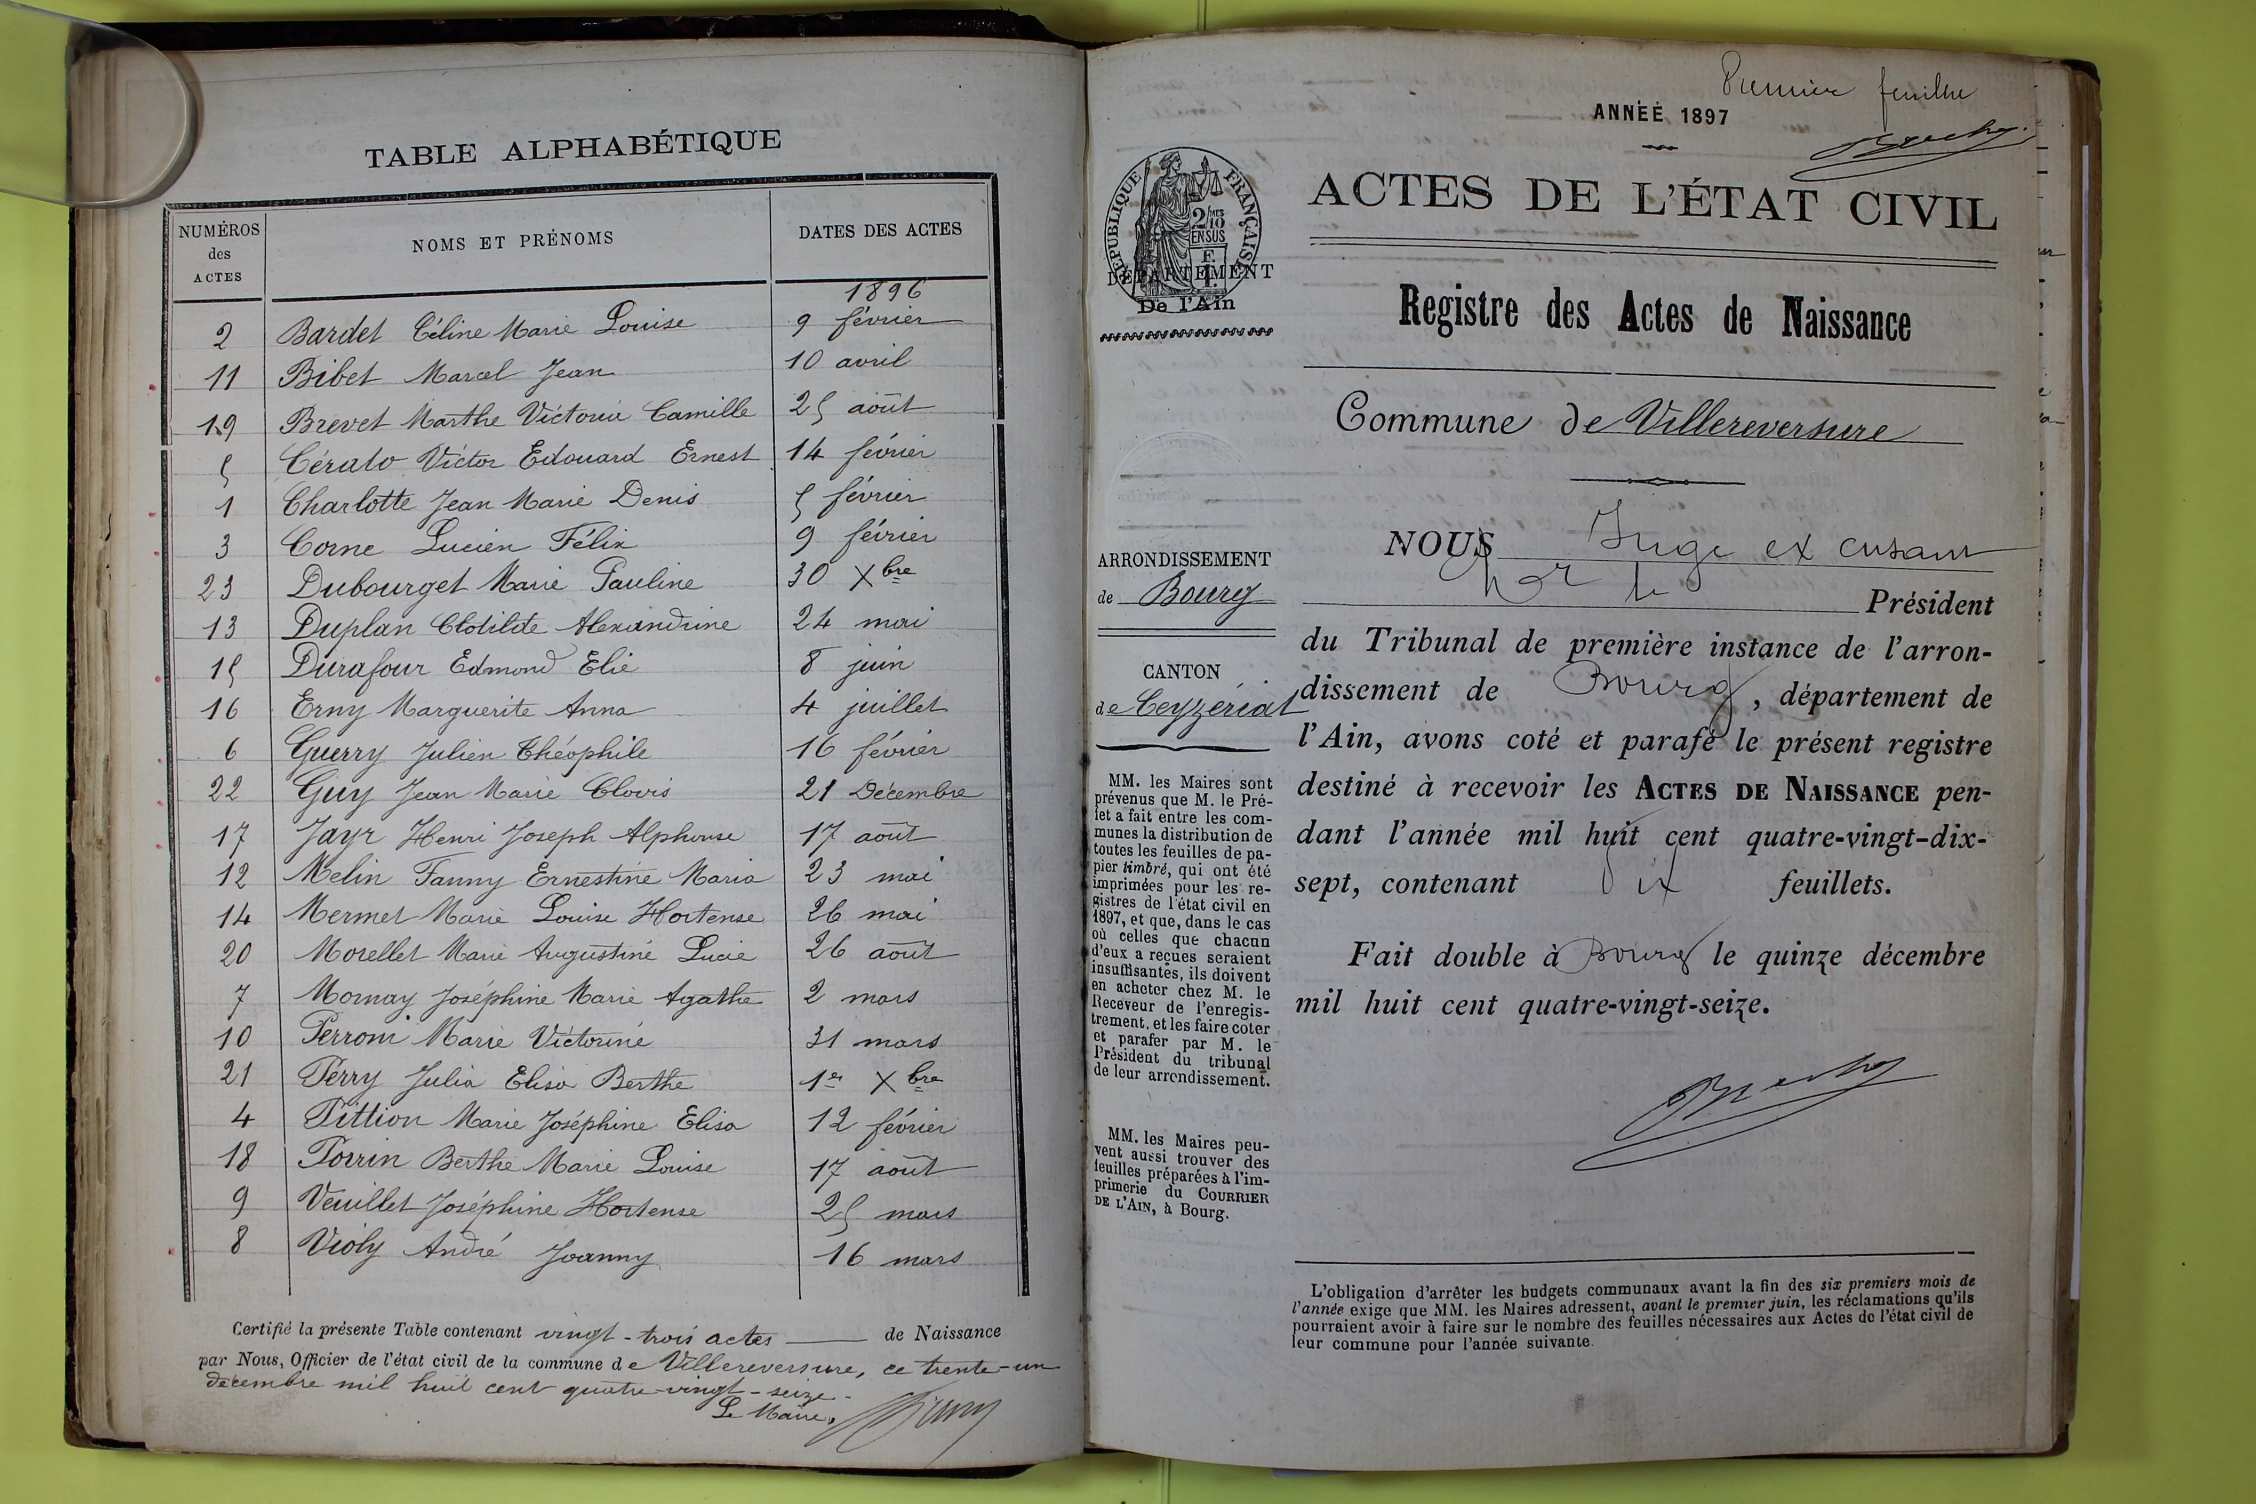 TABLE ALPHABÉTIQUE
NUMÉROS des ACTES NOMS ET PRÉNOMS DATES DES ACTES
1896
2 Bardet Céline Marie Louise 9 février
11 Bibet Marcel Jean 10 avril
19 Brevet Marthe Victorine Camille 25 août
5 Cérato Victor Edouard Ernest 14 février
1 Charlotte Jean Marie Denis 5 février
3 Corne Lucien Félix 9 février
23 Dubourget Marie Pauline 30 Xbre
13 Duplan Clotilde Alexandrine 24 mai
15 Durafour Edmond Elie 8 juin
16 Erny Marguerite Anna 4 juillet
6 Guerry Julien Théophile 16 février
22 Guy Jean Marie Clovis 21 Décembre
17 Jayr Henri Joseph Alphonse 17 août
12 Melin Fanny Ernestine Maria 23 mai
14 Mermet Marie Louise Hortense 26 mai
20 Morellet Marie Augustine Lucie 26 août
7 Mornay Joséphine Marie Agathe 2 mars
10 Perroni Marie Victorine 31 mars
21 Perry Julia Elisa Berthe 1er Xbre
4 Pittion Marie Joséphine Elisa 12 février
18 Poirin Berthe Marie Louise 17 août
9 Veuillet Joséphine Hortense 25 mars
8 Violy André Joanny 16 mars
Certifié la présente Table contenant vingt-trois actes de Naissance
par Nous, Officier de l'état civil de la commune de Villereversure, ce trente-un
décembre mil huit cent quatre-vingt-seize.
Le Maire,
Premier feuillet
ANNÉE 1897
RÉPUBLIQUE FRANÇAISE
2/10 EN SUS
DÉPARTEMENT
De l'Ain
ACTES DE L'ÉTAT CIVIL
Registre des Actes de Naissance
Commune de Villereversure
ARRONDISSEMENT
de Bourg
CANTON
de Ceyzériat
MM. les Maires sont
prévenus que M. le Pré-
fet a fait entre les com-
munes la distribution de
toutes les feuilles de pa-
pier timbré, qui ont été
imprimées pour les re-
gistres de l'état civil en
1897, et que, dans le cas
où celles que chacun
d'eux a reçues seraient
insuffisantes, ils doivent
en acheter chez M. le
Receveur de l'enregis-
trement, et les faire coter
et parafer par M. le
Président du tribunal
de leur arrondissement.
MM. les Maires peu-
vent aussi trouver des
feuilles préparées à l'im-
primerie du COURRIER
DE L'AIN, à Bourg.
NOUS Juge ex cusant
pour le Président
du Tribunal de première instance de l'arron-
dissement de Bourg, département de
l'Ain, avons coté et parafé le présent registre
destiné à recevoir les ACTES DE NAISSANCE pen-
dant l'année mil huit cent quatre-vingt-dix-
sept, contenant dix feuillets.
Fait double à Bourg le quinze décembre
mil huit cent quatre-vingt-seize.
L'obligation d'arrêter les budgets communaux avant la fin des six premiers mois de
l'année exige que MM. les Maires adressent, avant le premier juin, les réclamations qu'ils
pourraient avoir à faire sur le nombre des feuilles nécessaires aux Actes de l'état civil de
leur commune pour l'année suivante.